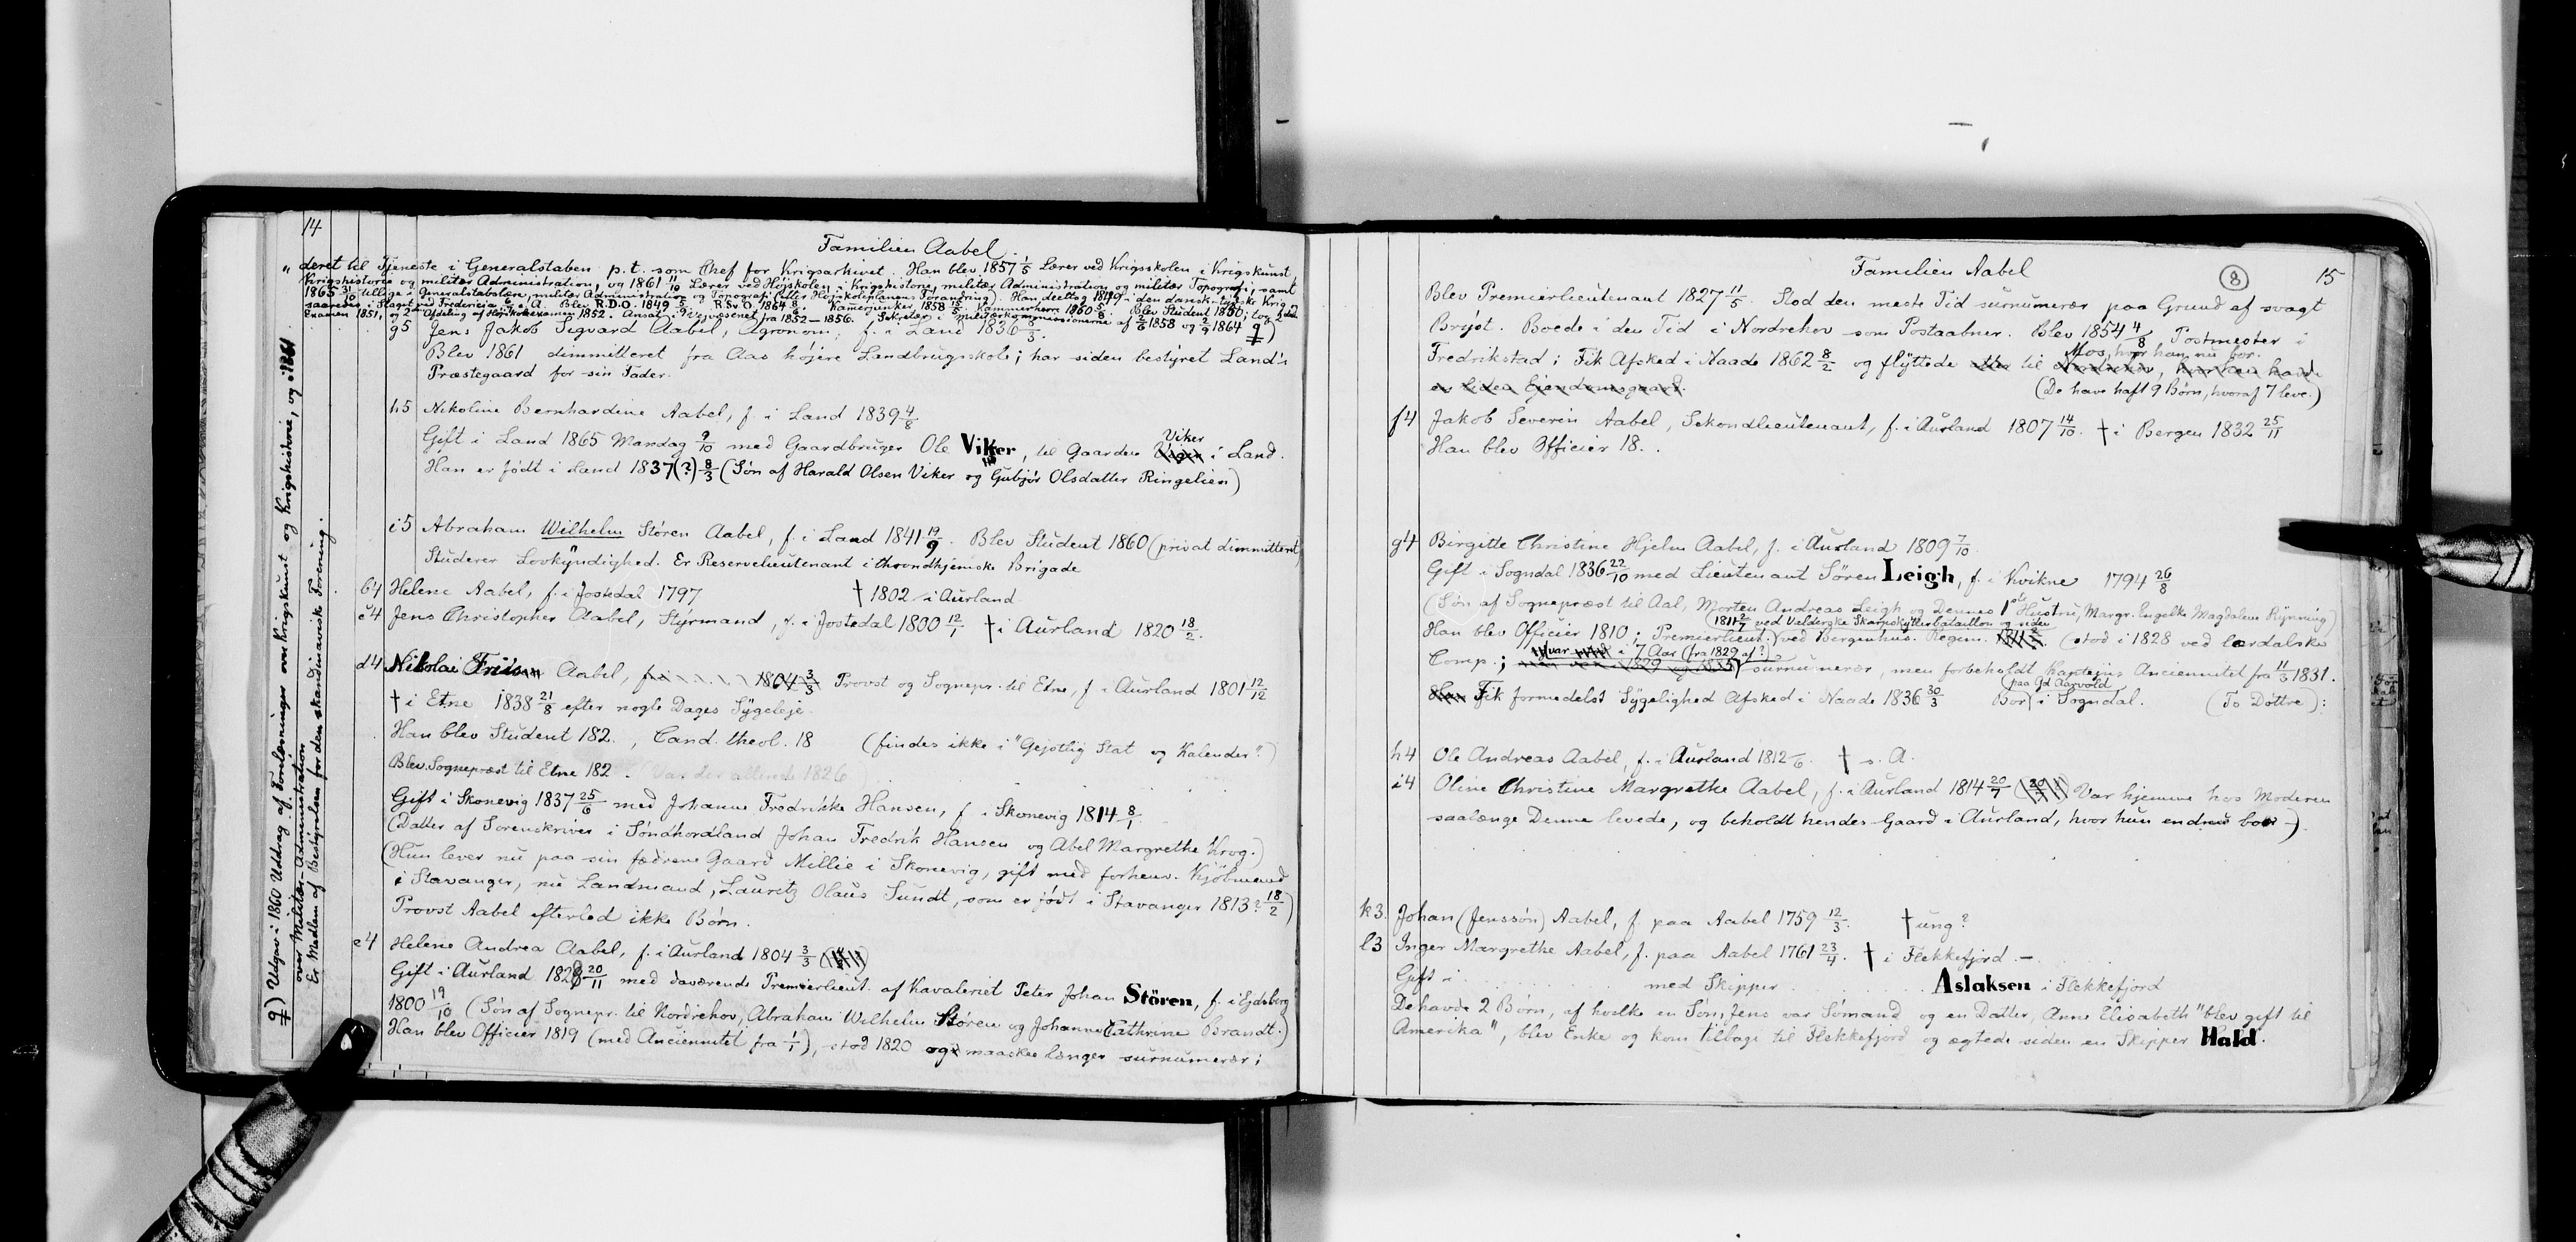 14
Familien Aabel.
„ deret til Tjeneste i Generalstaben p.t. som Chef for Krigsarkivet. Han blev 1857 1/5 Lærer ved Krigsskolen i Krigskunst,
Krigshistorie og militær Administration, og 1861 11/10 Lærer ved Højskolen i Krigshistorie, militær Administration og militær Topografi, samt
1865 31/10 tillige i Generalstabslære, militær Administration og Topografi (efter Højskoleplanens Forandring). Han deeltog 1849 i den dansk-tydske Krig,
saaredes i Slaget ved Fredericia 6/7 s. A. Blev R.D.O. 1849 R.Sv.O. 1864 Kamerjunker 1858 15/5 Kammerherre 1860 Blev Student 1850; tog
Examen 1851, og 2den Afdeling af Højskoleexamen 1852. Ansat i Vejvæsenet fra 1852–1856. Sekretær i Militærkommissionerne af 1858 og 1864 9)
g5 Jens Jakob Sigvard Aabel, Agronom, f. i Land 1836 8/3.
Blev 1861 dimmitteret fra Aas højere Landbrugsskole; har siden bestyret Land's
Præstegaard for sin Fader.
h5 Nikoline Bernhardine Aabel, f. i Land 1839 4/8
Gift i Land 1865 Mandag 9/10 med Gaardbruger Ole Viker, til Gaarden Viker i Land.
Han er født i Land 1837(?) 8/3 (Søn af Harald Olsen Viker og Gubjør Olsdatter Ringelien)
i5 Abraham Wilhelm Stören Aabel, f. i Land 1841 19/9. Blev Student 1860 (privat dimmitteret)
Studerer Lovkyndighed. Er Reservelieutenant i throndhjemske Brigade
b4 Helene Aabel, f. i Jostedal 1797 † 1802 i Aurland
c4 Jens Christopher Aabel, Styrmand, f. i Jostedal 1800 12/1 † i Aurland 1820 18/2.
d4 Nikolai Friis Aabel, 1804 3/3 Provst og Sognepr. til Etne, f. i Aurland 1801 12/12
† i Etne 1838 21/8 efter nogle Dages Sygeleje.
Han blev Student 182. , Cand. theol. 18 (findes ikke i "Gejstlig Stat og Kalender".)
Blev Sognepræst til Etne 182 . (Var der allerede 1826)
Gift i Skonevig 1837 25/6 med Johanne Fredrikke Hansen, f. i Skonevig 1814 8/1.
(Datter af Sorenskriver i Søndhordland Johan Fredrik Hansen og Abel Margrethe Krog.)
(Hun lever nu paa sin fædrene Gaard Millie i Skonevig, gift med forhenv. Kjöbmand
i Stavanger, nu Landmand, Lauritz Olaus Sundt, som er født i Stavanger 1813? 18/2)
Provst Aabel efterlod ikke Børn.
e4 Helene Andrea Aabel, f. i Aurland 1804 3/3
Gift i Aurland 1828 20/11 med daværende Premierlieut. af Kavaleriet Peter Johan Stören, f. i Ejdsberg
1800 19/10 (Søn af Sognepr. til Nordrehov, Abraham Wilhelm Støren og Johanne Cathrine Brandt.)
Han blev Officier 1819 (med Anciennitet fra 1/1), stod 1820 og maaskee længer surnumerær;
9) Udgav i 1860 Uddrag af Forelæsninger over Krigskunst og Krigshistorie, og i 1861
over Militær-Administration
Er Medlem af Bestyrelsen for den skandinaviske Forening.
Familien Aabel
8
15
Blev Premierlieutenant 1827 11/5. Stod den meste Tid surnumerær paa Grund af svagt
Bryst. Boede i den Tid i Nordrehov som Postaabner. Blev 1854 4/8 Postmester i
Mos, hvor han nu bor.
Fredrikstad; Fik Afsked i Naade 1862 8/2 og flyttede til Nordrehov, hvor han havde
en liden Ejendomsgaard. (De have haft 9 Børn, hvoraf 7 leve.)
f4 Jakob Severin Aabel, Sekondlieutenant, f. i Aurland 1807 14/10. † i Bergen 1832 25/11
Han blev Officier 18. .
g4 Birgitte Christine Hjelm Aabel, f. i Aurland 1809 7/10.
Gift i Sogndal 1836 22/10 med Lieutenant Sören Leigh, f. i Kvikne 1794 26/8
(Søn af Sognepræst til Aal, Morten Andreas Leigh og Dennes 1ste Hustru, Margr. Engelke Magdalene Rynning)
1811 2/7 ved Valderske Skarpskytterbataillon og siden
Han blev Officier 1810; Premierlieut. ved Bergenhus. Regim. (stod i 1828 ved lærdalske
var i 7 Aar (fra 1829 af?)
Comp.; surnumerær, men forbeholdt Kaptejns Anciennitet fra 11/3 1831.
paa Gd Aarvold
Fik formedelst Sygelighed Afsked i Naade 1836 30/3 Bor i Sogndal. (To Døttre):
h4 Ole Andreas Aabel, f. i Aurland 1812 /6. † s. A.
i4 Oline Christine Margrethe Aabel, f. i Aurland 1814 20/7 Var hjemme hos Moderen
saalænge Denne levede, og beholdt hendes Gaard i Aurland, hvor hun endnu boer –)
k3. Johan (Jenssøn) Aabel, f. paa Aabel 1759 12/3. † ung?
l3 Inger Margrethe Aabel, f. paa Aabel 1761 23/4. † i Flekkefjord –
Gift i med Skipper Aslaksen i Flekkefjord
De havde 2 Børn, af hvilke en Søn, Jens var Sømand og en Datter, Anne Elisabeth "blev gift til
Amerika", blev Enke og kom tilbage til Flekkefjord og ægtede siden en Skipper Hald.